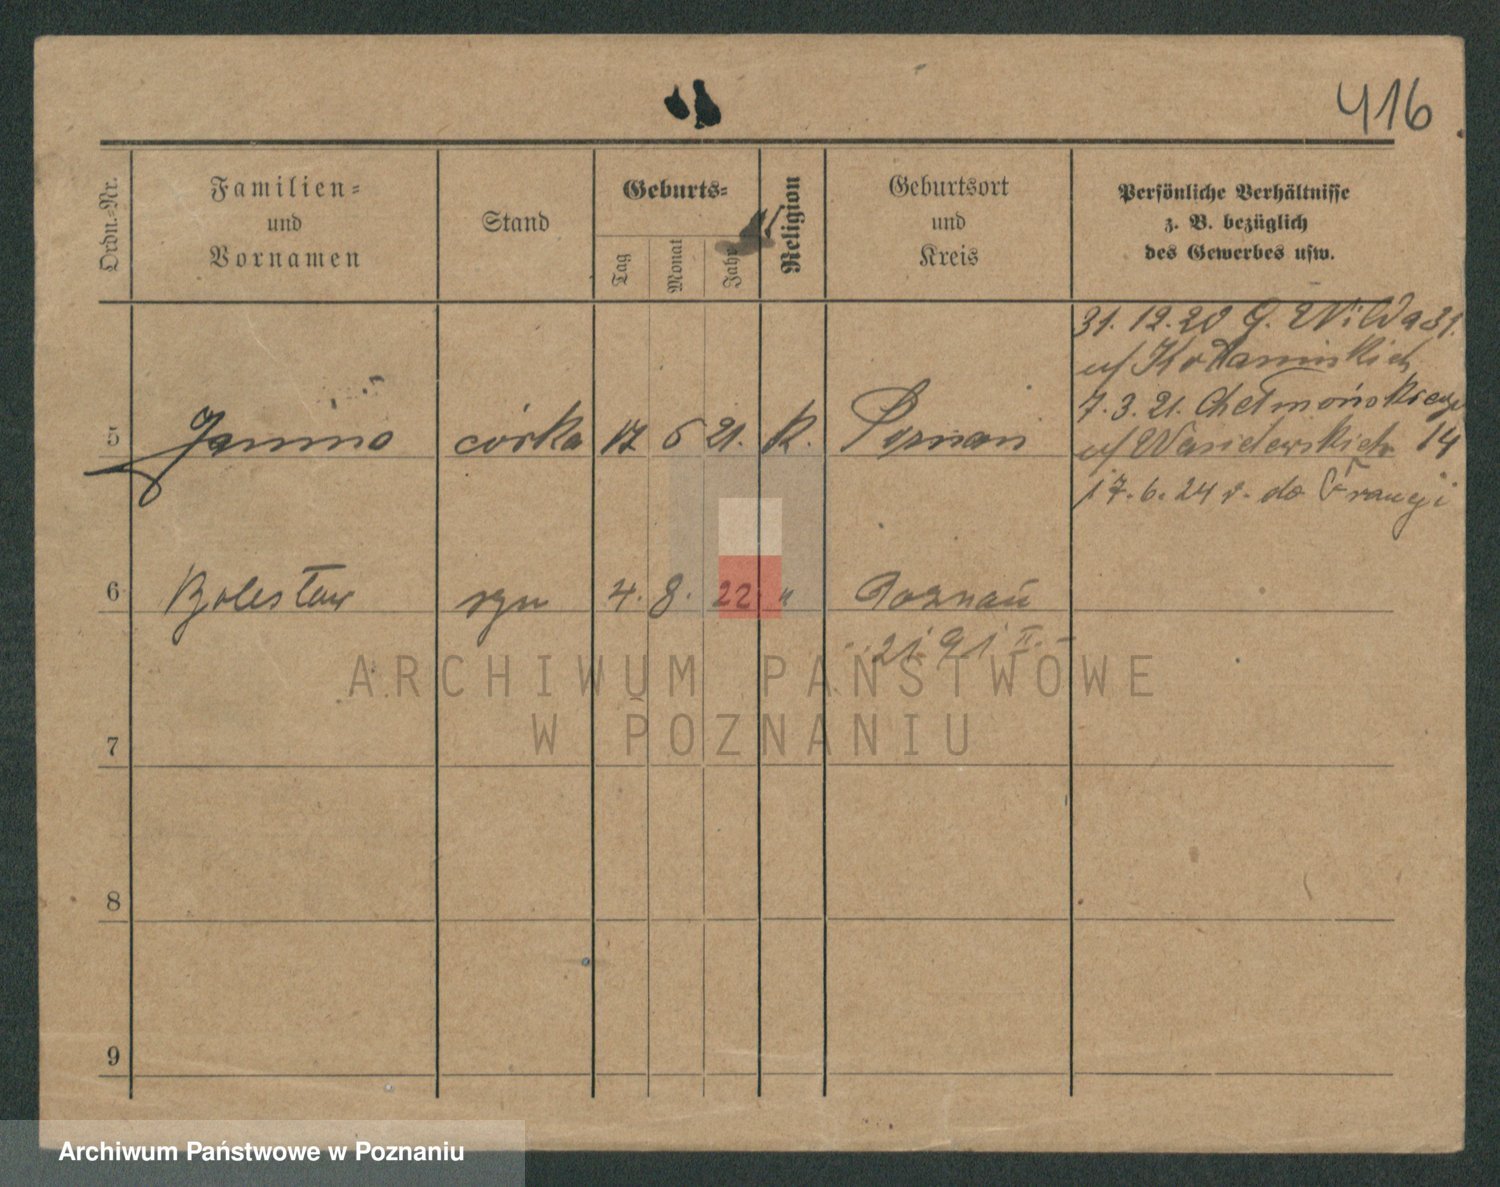 416
Ordn.-Nr.
Familien-
und
Vornamen
Stand
Geburts-
Tag
Monat
Jahr
Religion
Geburtsort
und
Kreis
Persönliche Verhältnisse
z. B. bezüglich
des Gewerbes usw.
31. 12. 20 G. Wilda 31.
u/
7. 3. 21. Chełmońskiego
5 Janina córka 17 6 21. K. Poznań
u/ 14
17. 6. 24 r. do Francji
6 Bolesław syn 4. 8. 22 " Poznań
ARCHIWUM PAŃSTWOWE
W POZNANIU
7
8
9
Archiwum Państwowe w Poznaniu